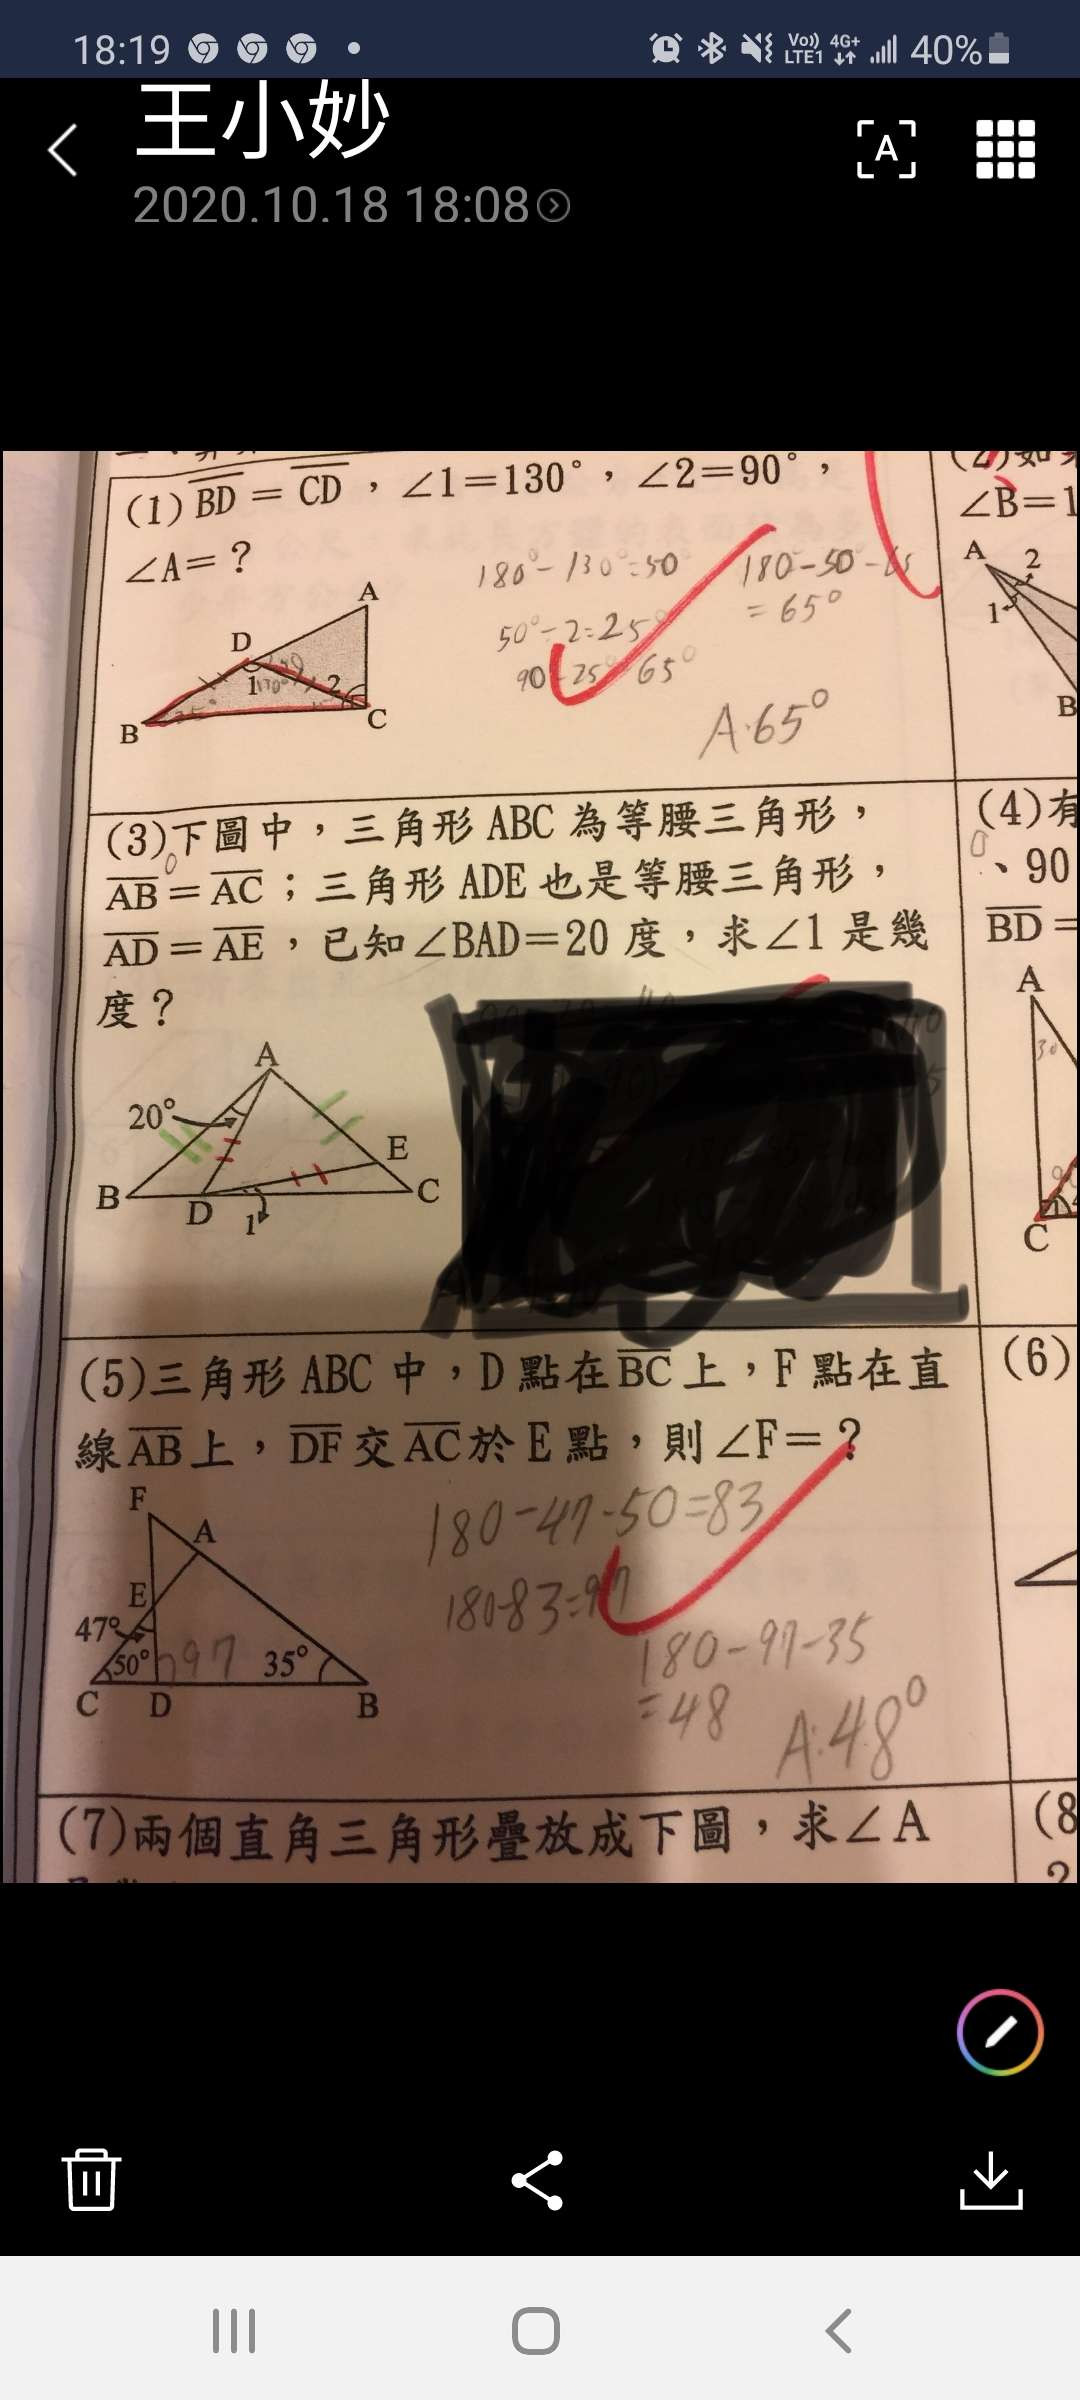 18:19
Vo)) LTE1 4G+ 40%
王小妙
2020.10.18 18:08
(1) BD = CD，∠1=130°，∠2=90°，
∠A=？
180°-130°=50
50°÷2=25
90-25 65°
180-50-65
=65°
A:65°
A
D
1 130°
2
B
C
∠B=1
A
2
1
B
(3)下圖中，三角形 ABC 為等腰三角形，
AB = AC；三角形 ADE 也是等腰三角形，
AD = AE，已知∠BAD=20 度，求∠1 是幾
度？
A
20°
E
B
D
1
C
(4)有
、90
BD =
A
30
C
(5)三角形 ABC 中，D 點在BC上，F 點在直
線AB上，DF交AC於 E 點，則∠F=？
180-47-50=83
180-83=97
180-97-35
=48
A:48°
F
A
E
47°
50°
97
35°
C
D
B
(6)
(7)兩個直角三角形疊放成下圖，求∠A
(8